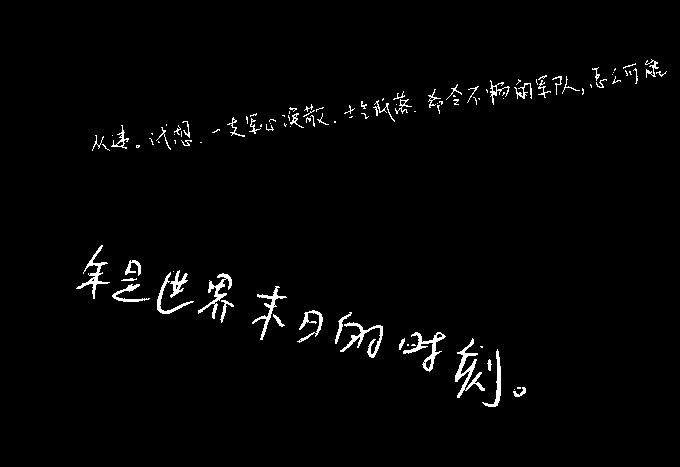 从违。试想、一支军心涣散、士气低落、命令不畅的军队，怎么可能
年是世界末日的时刻。